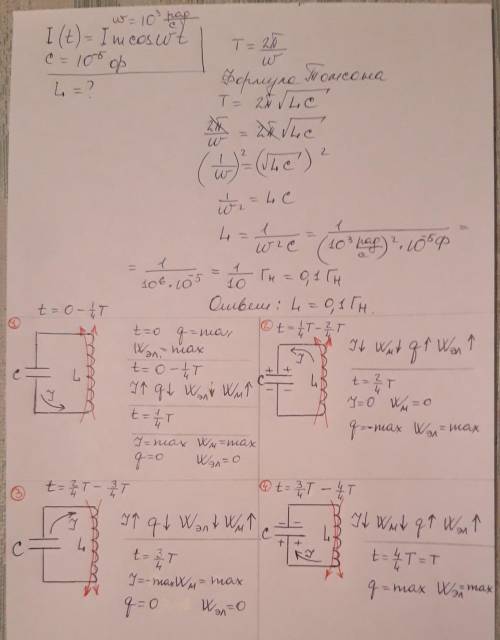 ω = 10³ рад/с
I(t) = Im cos ωt
C = 10⁻⁵ Ф
L = ?
T = 2π/ω
Формула Томсона
T = 2π√LC
2π/ω = 2π√LC
(1/ω)² = (√LC)²
1/ω² = LC
L = 1/ω²C = 1/(10³ рад/с)² · 10⁻⁵Ф =
= 1/10⁶·10⁻⁵ = 1/10 Гн = 0,1 Гн
Ответ: L = 0,1 Гн
① t = 0 - 1/4T
C L I
t=0 q=max
Wэл = max
t = 0 - 1/4T
I↑ q↓ Wэл↓ Wм↑
t = 1/4T
I=max Wм=max
q=0 Wэл=0
② t = 1/4T - 2/4T
C + + - - L I
I↓ Wм↓ q↑ Wэл↑
t = 2/4T
I=0 Wм=0
q=-max Wэл=max
③ t = 2/4T - 3/4T
C L I
I↑ q↓ Wэл↓ Wм↑
t = 3/4T
I=-max Wм=max
q=0 Wэл=0
④ t = 3/4T - 4/4T
C - - + + L I
I↓ Wм↓ q↑ Wэл↑
t = 4/4T = T
q=max Wэл=max